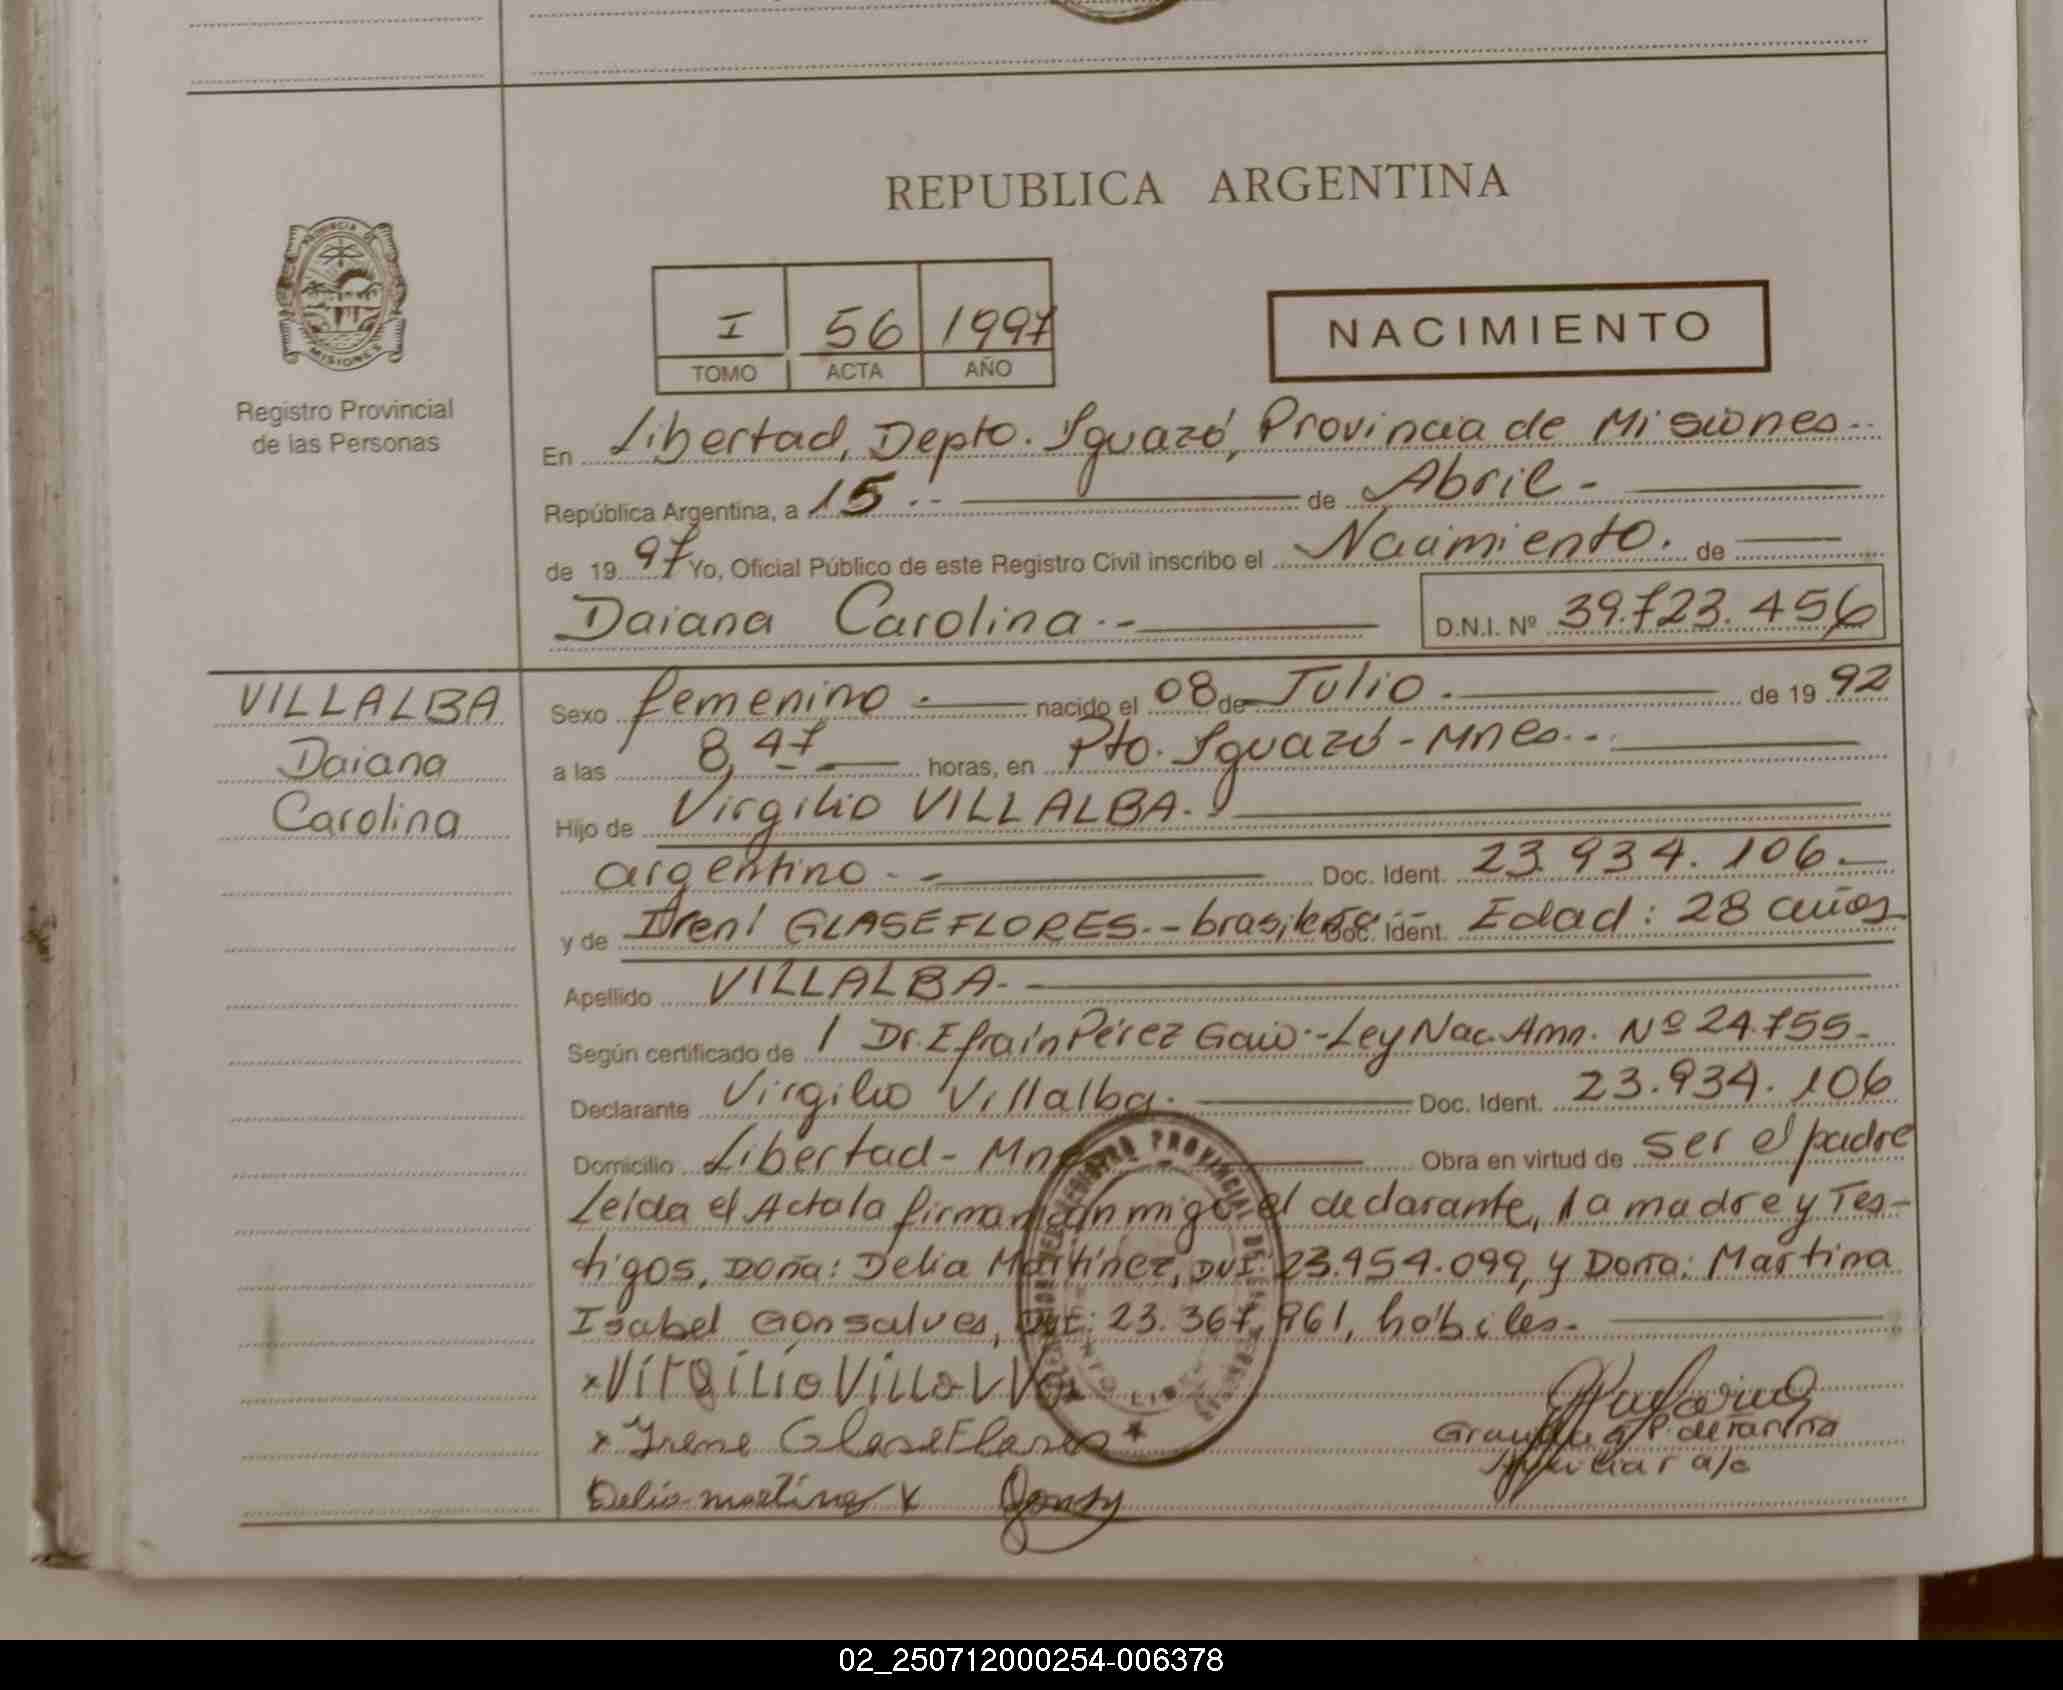 REPUBLICA ARGENTINA
PROVINCIA DE MISIONES
Registro Provincial
de las Personas
I 56 1997
TOMO ACTA AÑO
NACIMIENTO
En Libertad, Depto. Iguazú, Provincia de Misiones..
República Argentina, a 15.- de Abril-
de 19 97 Yo, Oficial Público de este Registro Civil inscribo el Nacimiento. de
Daiana Carolina.- D.N.I. Nº 39.723.456
VILLALBA
Daiana
Carolina
Sexo femenino.- nacido el 08 de Julio.- de 19 92
a las 8,47 horas, en Pto. Iguazú-Mnes..
Hijo de Virgilio VILLALBA.
argentino.- Doc. Ident. 23.934.106.-
y de GLASEFLORES.- Doc. Ident. Edad: 28 años
Apellido VILLALBA.-
Según certificado de Dr. Efraín Pérez .-Ley Nac. Amn. Nº 24.755-
Declarante Virgilio Villalba. Doc. Ident. 23.934.106
Domicilio Libertad- Obra en virtud de ser el padre
Leída el Acta la firman conmigo el declarante, la madre y Tes-
tigos, Doña: Delia Martínez, 23.954.099, y Doña: Martina
Isabel Gonsalves, 23.367.961, hábiles.
REGISTRO PROVINCIAL DE
x Virgilio
x Irene GlaseFlores
Delia martinez x
P. de Farina
Auxiliar a/c
02_250712000254-006378